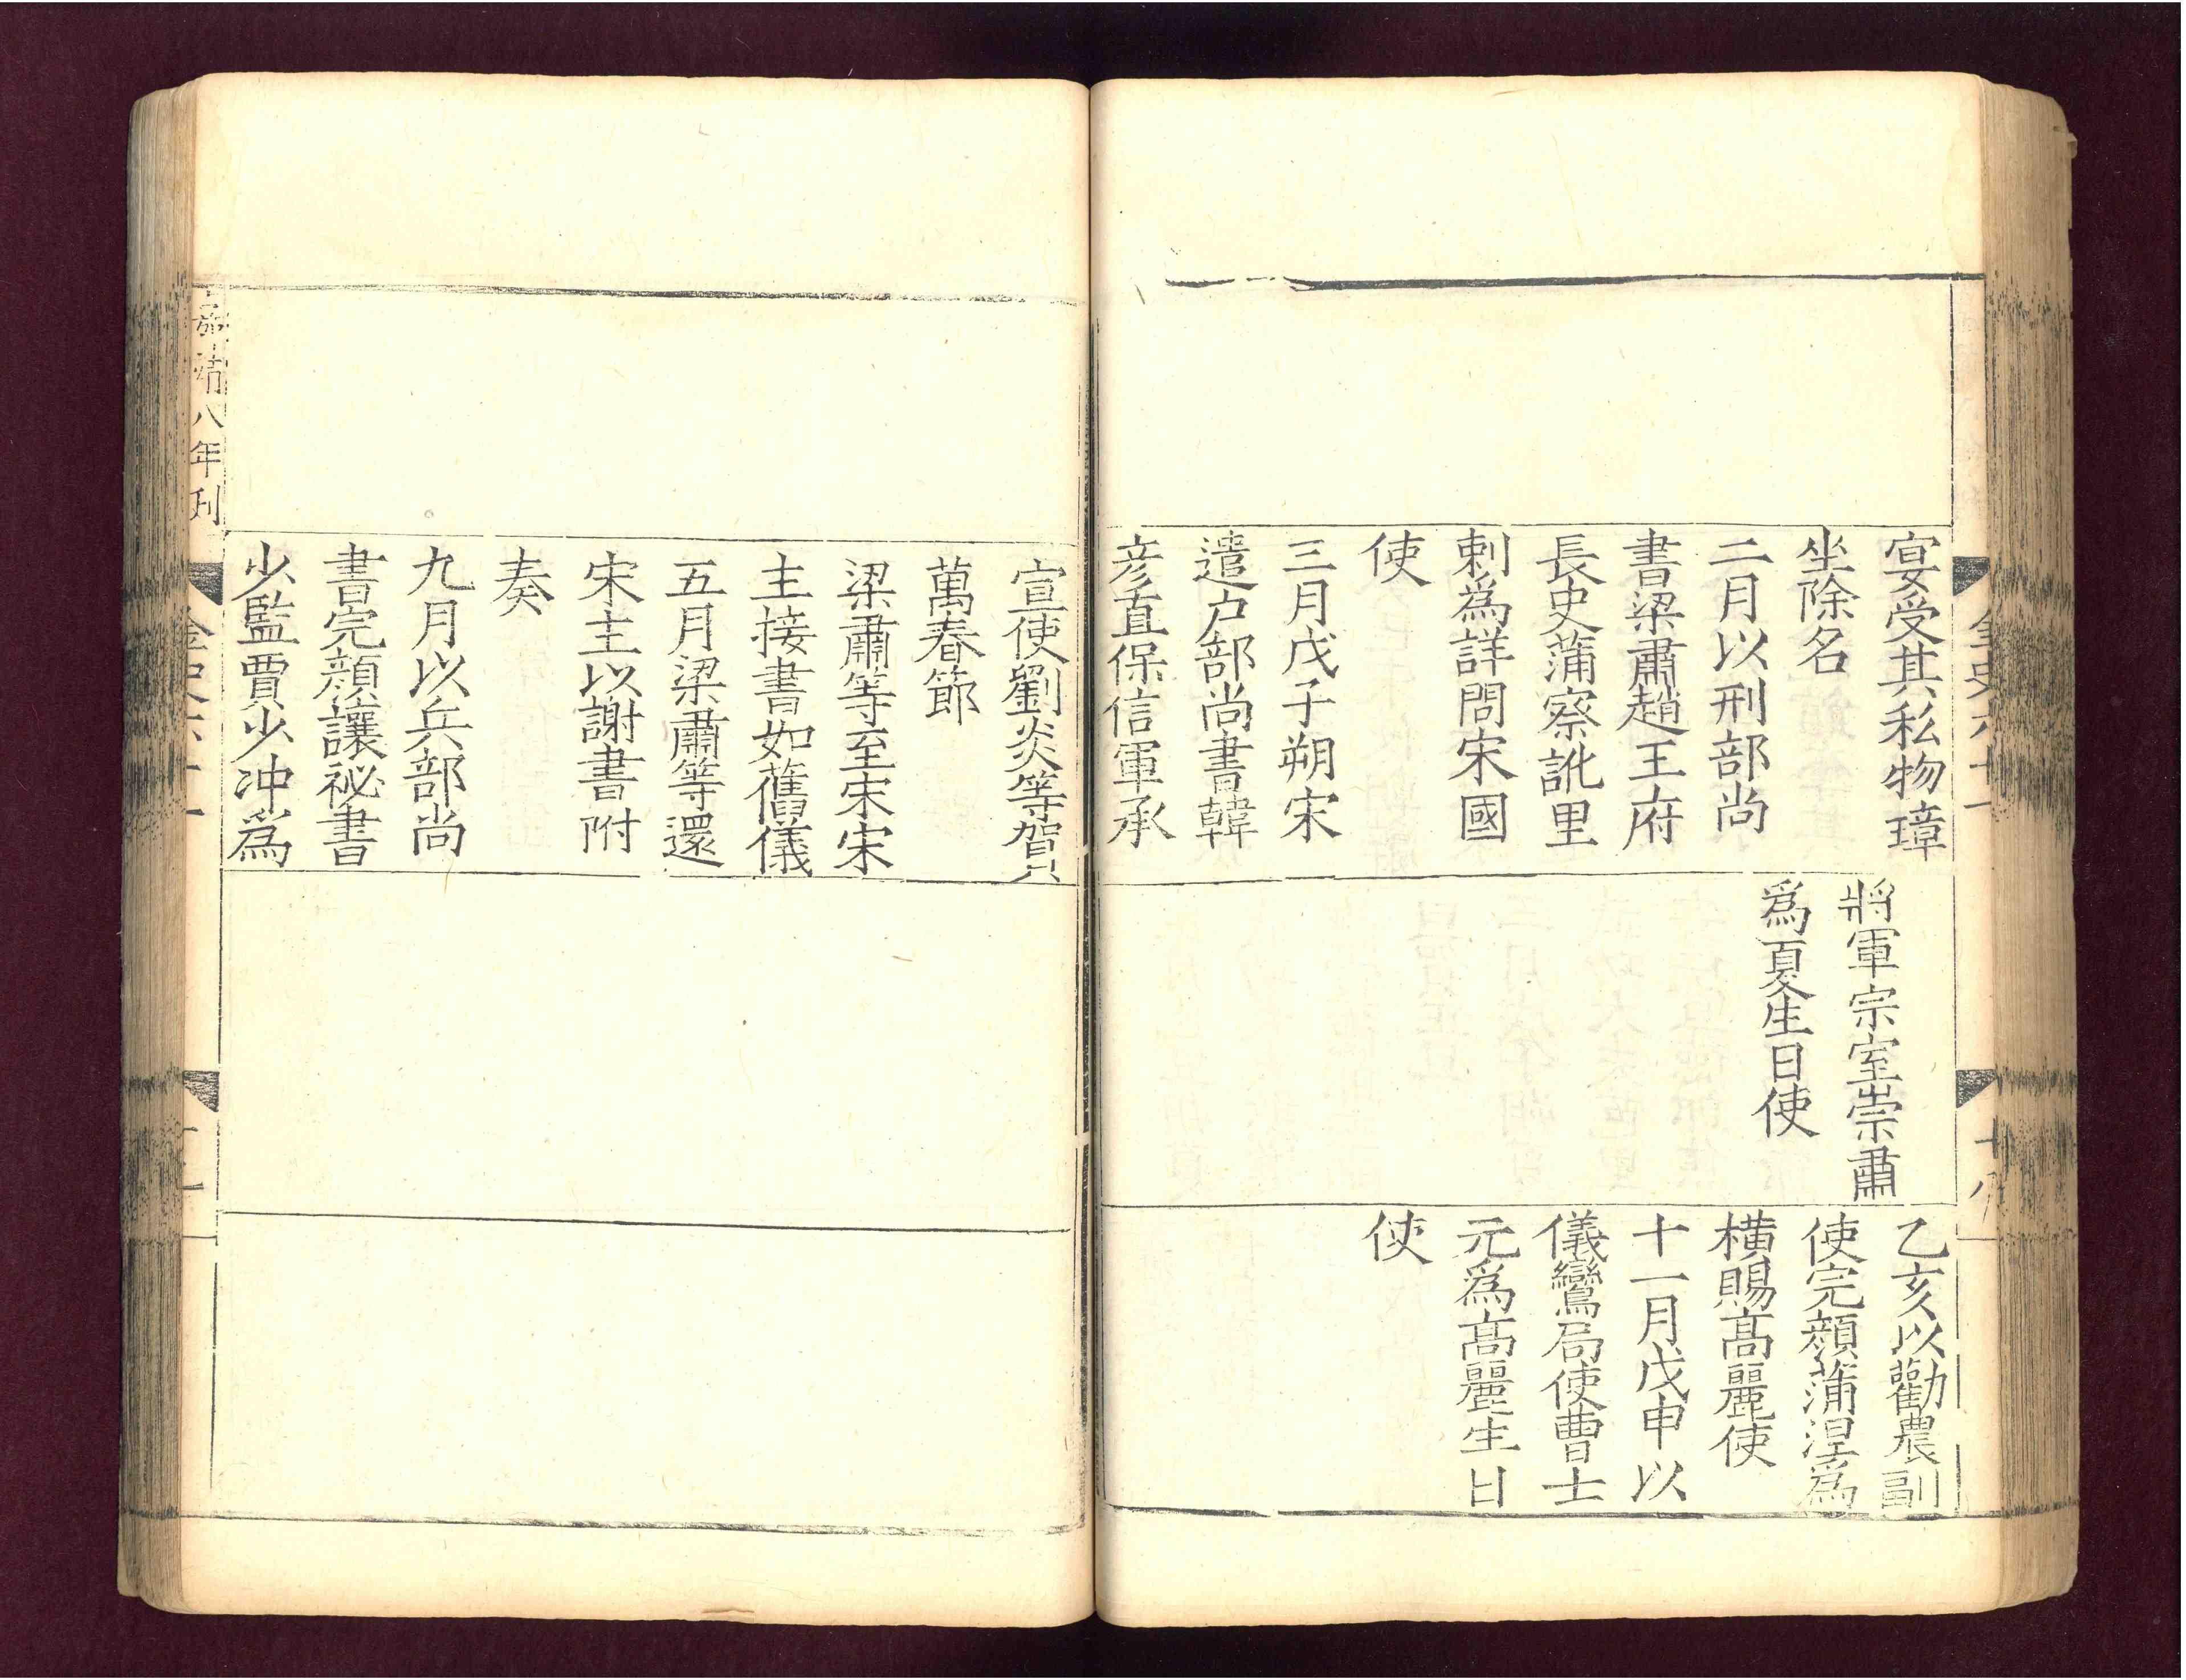 宴受其私物璋
坐除名
二月以刑部尚
書梁肅趙王府
長史蒲察訛里
剌為詳問宋國
使
三月戊子朔宋
遣户部尚書韓
彦直保信軍承
將軍宗室崇肅
爲夏生日使
乙亥以勸農副
使完顔蒲涅爲
橫賜髙麗使
十一月戊申以
儀鸞局使曹士
元爲髙麗生日
使
金史六十一
十八
宣使劉炎等賀
萬春節
梁肅等至宋宋
主接書如舊儀
五月梁肅等還
宋主以謝書附
奏
九月以兵部尚
書完顔讓祕書
少監賈少冲爲
嘉靖八年刊